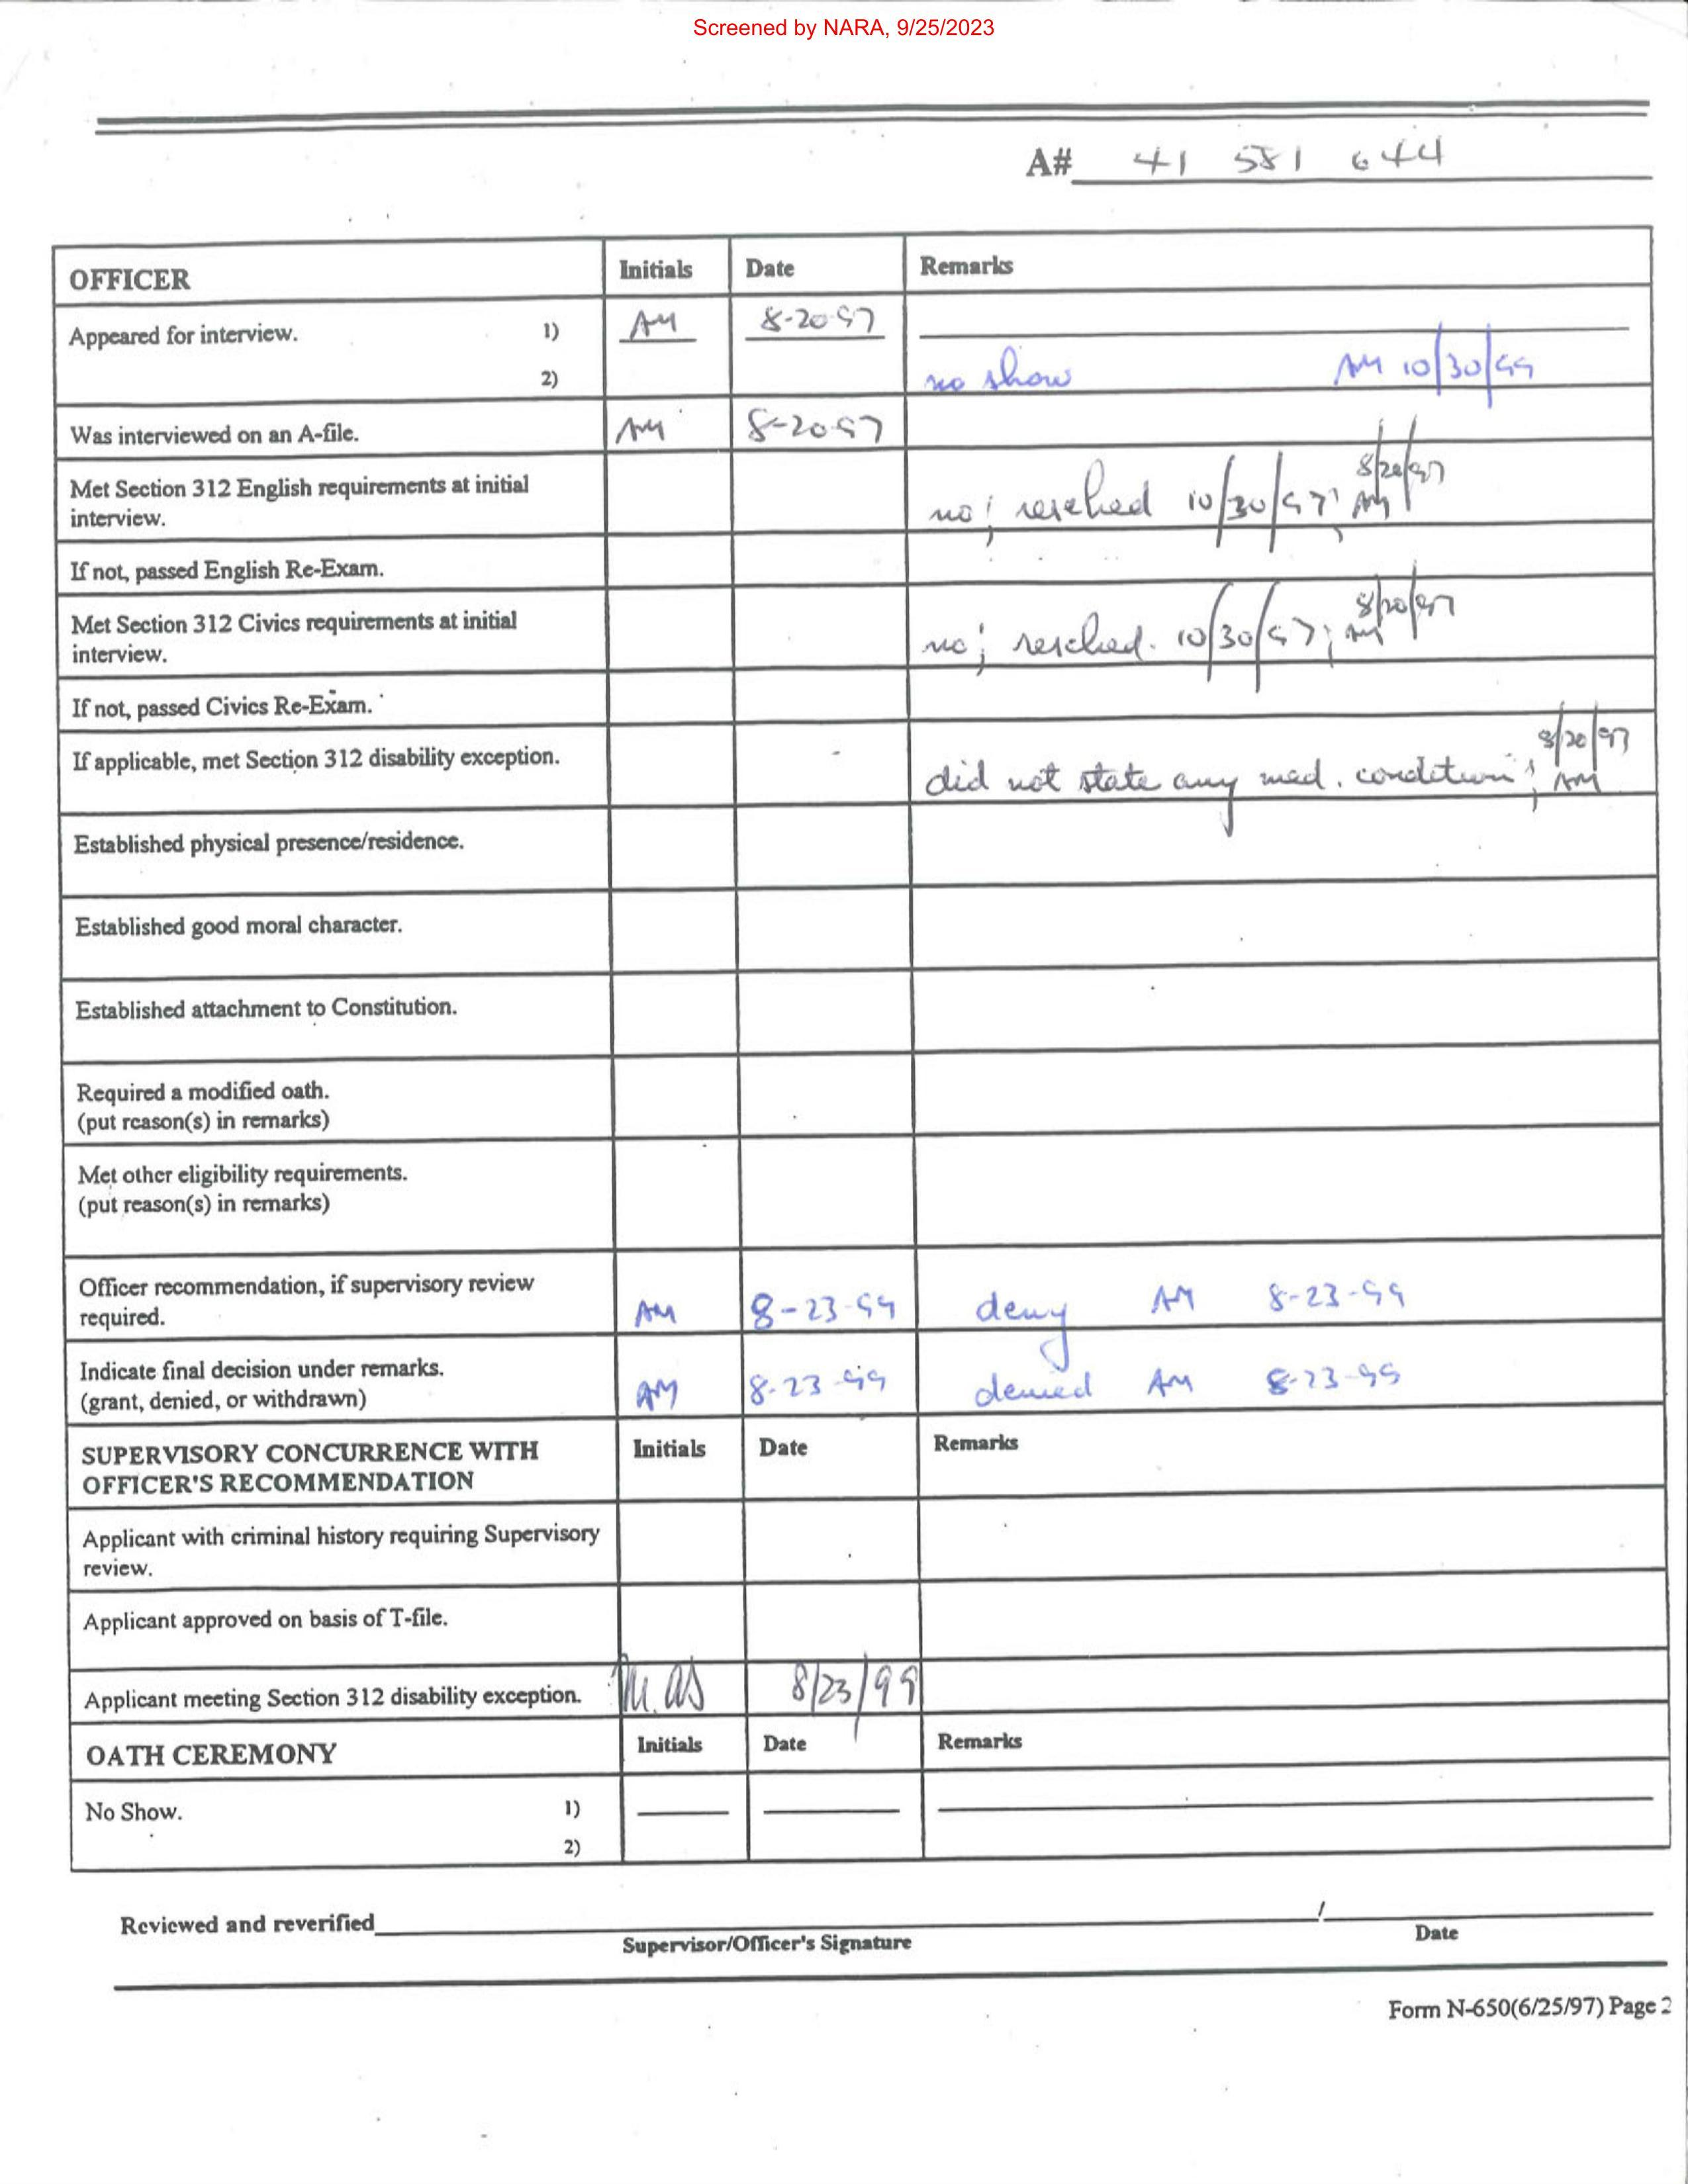 Screened by NARA, 9/25/2023
A# 41 581 644
OFFICER Initials Date Remarks
Appeared for interview. 1) AM 8-20-97
2) no show AM 10/30/99
Was interviewed on an A-file. AM 8-20-97
Met Section 312 English requirements at initial
interview. no; resched 10/30/97; AM 8/20/97
If not, passed English Re-Exam.
Met Section 312 Civics requirements at initial
interview. no; resched. 10/30/97; AM 8/20/97
If not, passed Civics Re-Exam.
If applicable, met Section 312 disability exception. did not state any med. condition; AM 8/20/97
Established physical presence/residence.
Established good moral character.
Established attachment to Constitution.
Required a modified oath.
(put reason(s) in remarks)
Met other eligibility requirements.
(put reason(s) in remarks)
Officer recommendation, if supervisory review
required. AM 8-23-99 deny AM 8-23-99
Indicate final decision under remarks.
(grant, denied, or withdrawn) AM 8-23-99 denied AM 8-23-99
SUPERVISORY CONCURRENCE WITH Initials Date Remarks
OFFICER'S RECOMMENDATION
Applicant with criminal history requiring Supervisory
review.
Applicant approved on basis of T-file.
Applicant meeting Section 312 disability exception. 8/23/99
OATH CEREMONY Initials Date Remarks
No Show. 1)
2)
Reviewed and reverified /
Supervisor/Officer's Signature Date
Form N-650(6/25/97) Page 2